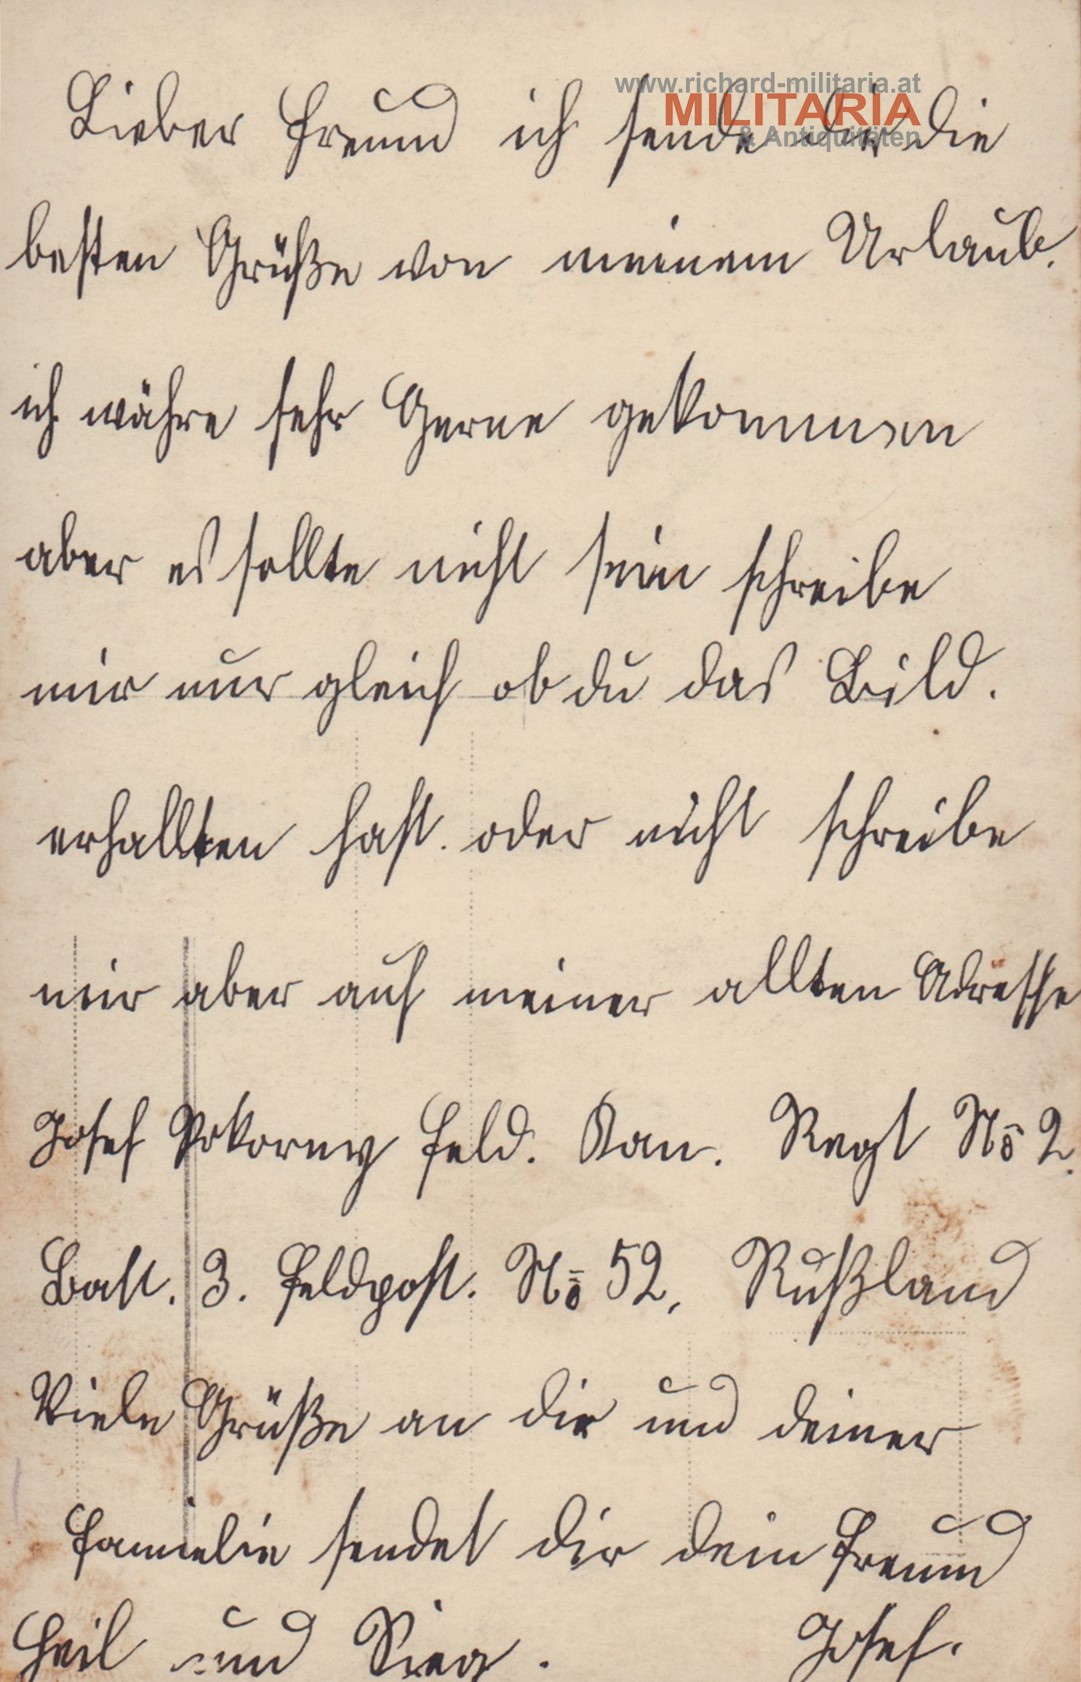 www.richard-militaria.at
MILITARIA
& Antiquitäten
Lieber Freund ich sende dir die
besten Grüße von meinem Urlaub.
ich währe sehr Gerne gekommen
aber es sollte nicht sein schreibe
mir nur gleich ob du das Bild.
erhallten hast. oder nicht schreibe
mir aber auf meiner allten Adresse
Josef Pokorny Feld. Kan. Regt No 2.
Batt. 3. Feldpost. No 52. Rußland
Viele Grüße an die und deiner
Familie sendet dir dein Freund
Heil und Sieg. Josef.